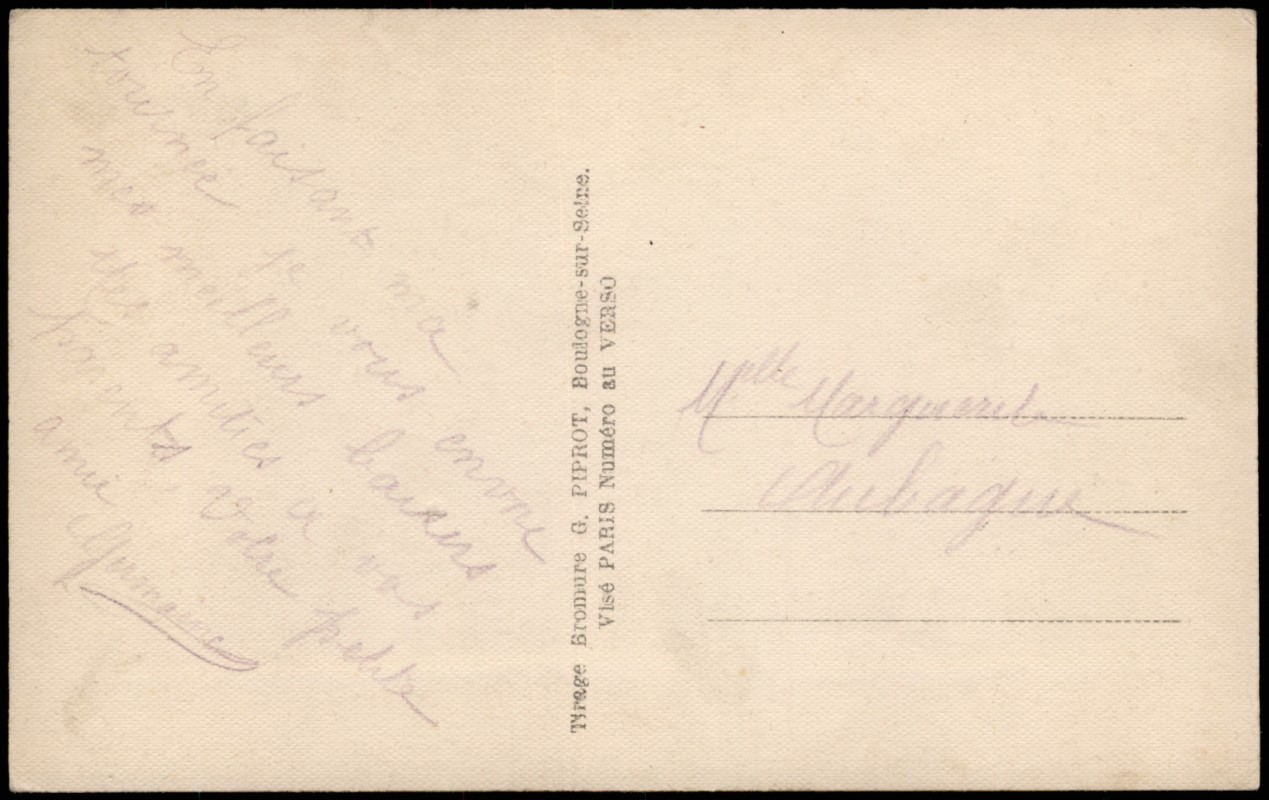 En faisant ma
tournée je vous envoie
mes meilleurs baisers
des amitiés à vos
parents votre petite
amie Germaine
Tirage Bromure G. PIPROT, Boulogne-sur-Seine.
Visé PARIS Numéro au VERSO
Melle Marguerite
Aubagne